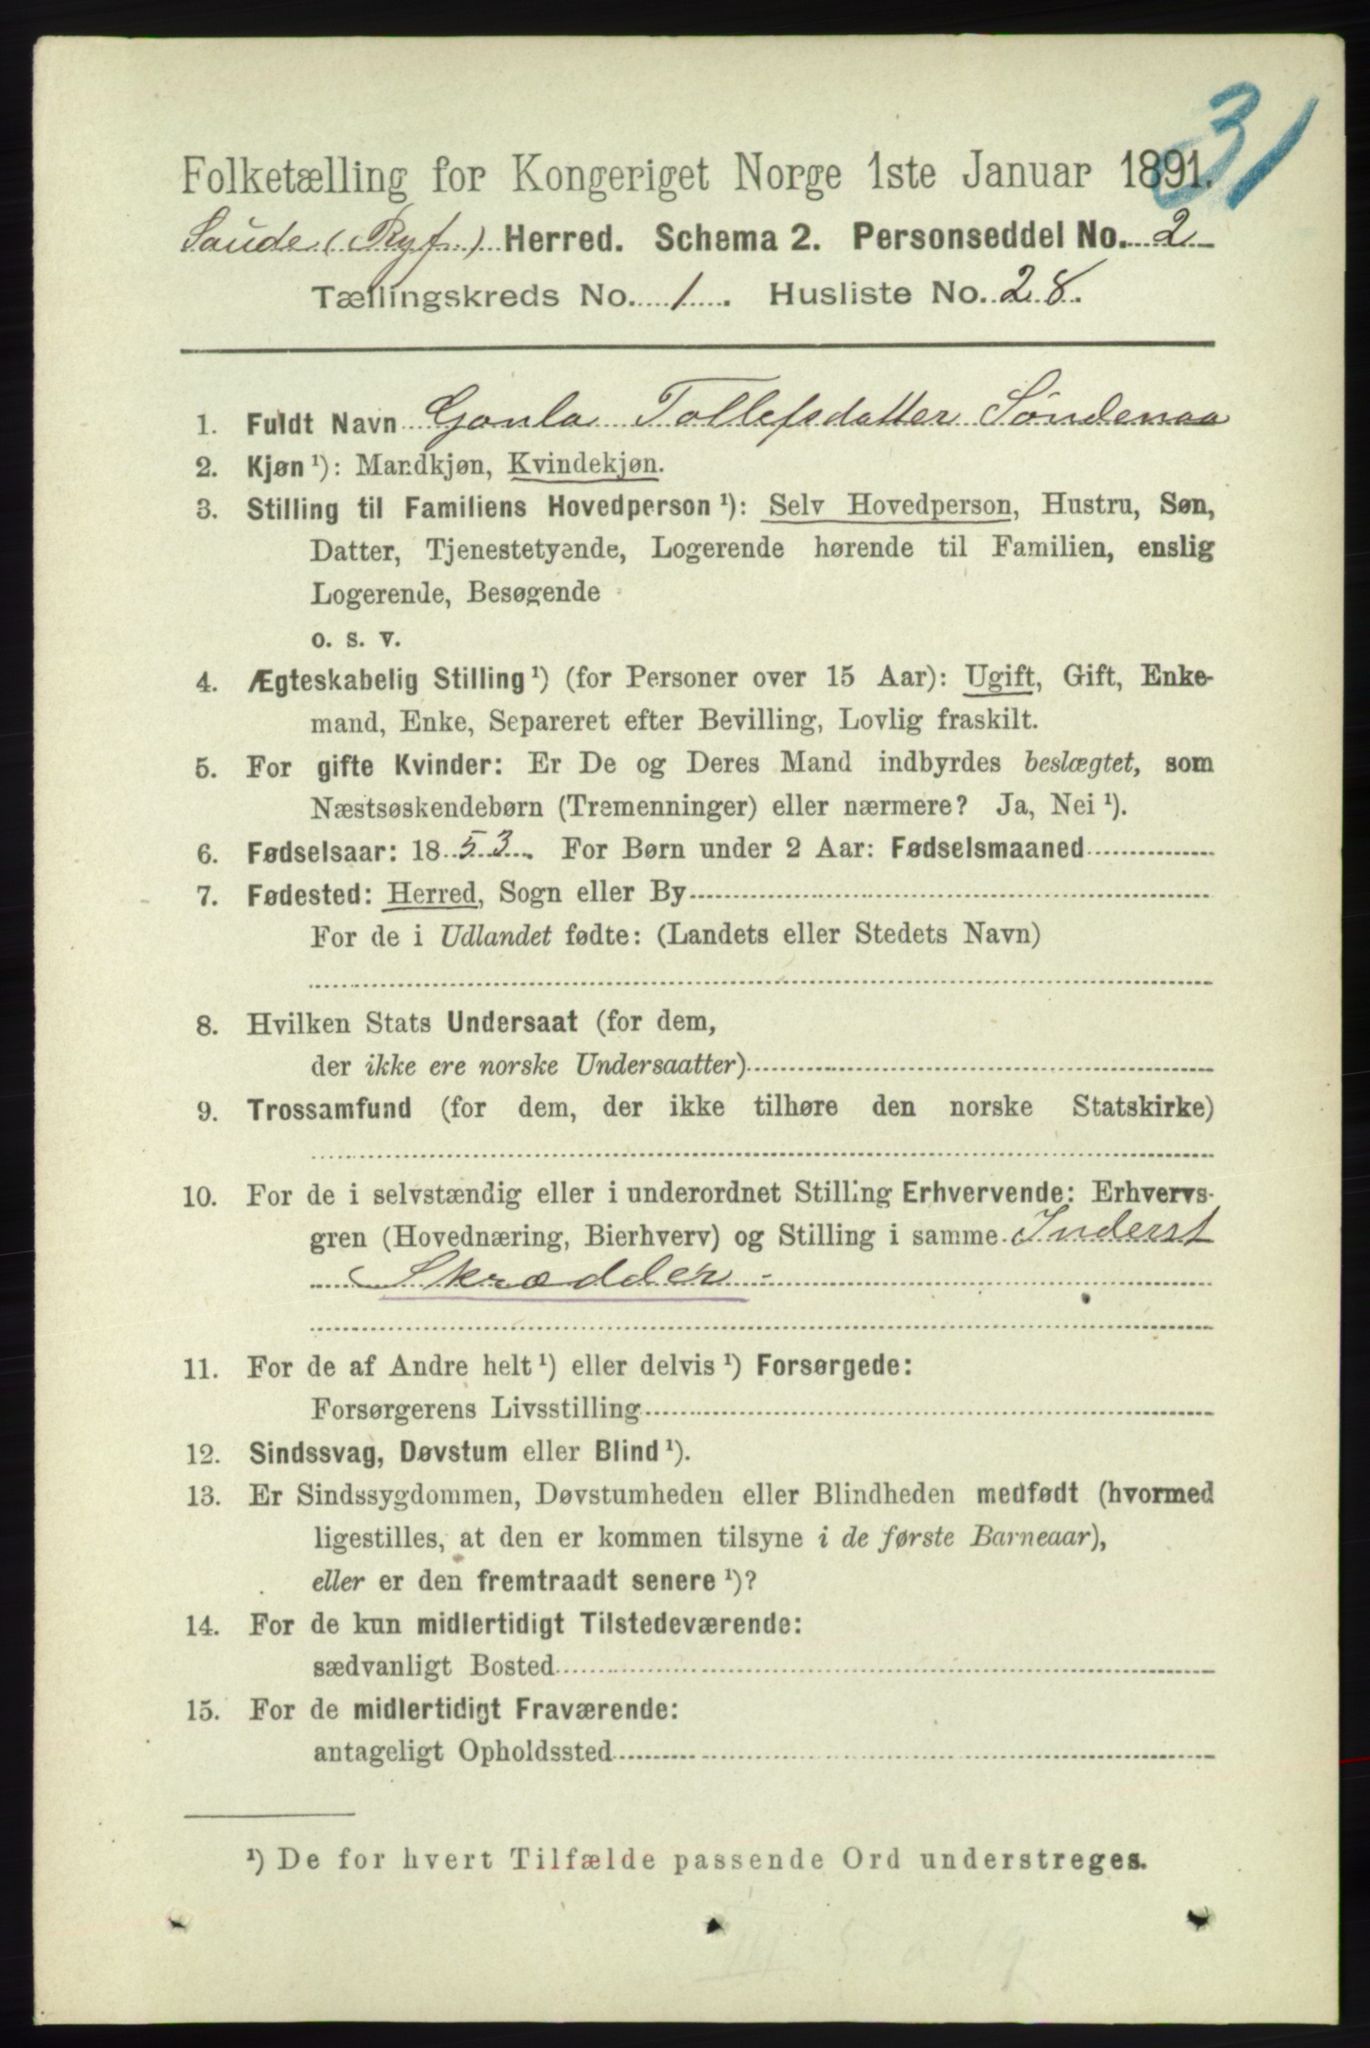 31
Folketælling for Kongeriget Norge 1ste Januar 1891.
Saude (Ryf.) Herred. Schema 2. Personseddel No. 2
Tællingskreds No. 1. Husliste No. 28.
1. Fuldt Navn Gonla Tollefsdatter Søndenaa
2. Kjøn ¹): Mandkjøn, Kvindekjøn.
3. Stilling til Familiens Hovedperson ¹): Selv Hovedperson, Hustru, Søn,
Datter, Tjenestetyende, Logerende hørende til Familien, enslig
Logerende, Besøgende
o. s. v.
4. Ægteskabelig Stilling ¹) (for Personer over 15 Aar): Ugift, Gift, Enke-
mand, Enke, Separeret efter Bevilling, Lovlig fraskilt.
5. For gifte Kvinder: Er De og Deres Mand indbyrdes beslægtet, som
Næstsøskendebørn (Tremenninger) eller nærmere? Ja, Nei ¹).
6. Fødselsaar: 1853. For Børn under 2 Aar: Fødselsmaaned
7. Fødested: Herred, Sogn eller By
For de i Udlandet fødte: (Landets eller Stedets Navn)
8. Hvilken Stats Undersaat (for dem,
der ikke ere norske Undersaatter)
9. Trossamfund (for dem, der ikke tilhøre den norske Statskirke)
10. For de i selvstændig eller i underordnet Stilling Erhvervende: Erhvervs-
gren (Hovednæring, Bierhverv) og Stilling i samme Inderst
Skrædder
11. For de af Andre helt ¹) eller delvis ¹) Forsørgede:
Forsørgerens Livsstilling
12. Sindssvag, Døvstum eller Blind ¹).
13. Er Sindssygdommen, Døvstumheden eller Blindheden medfødt (hvormed
ligestilles, at den er kommen tilsyne i de første Barneaar),
eller er den fremtraadt senere ¹)?
14. For de kun midlertidigt Tilstedeværende:
sædvanligt Bosted
15. For de midlertidigt Fraværende:
antageligt Opholdssted
¹) De for hvert Tilfælde passende Ord understreges.